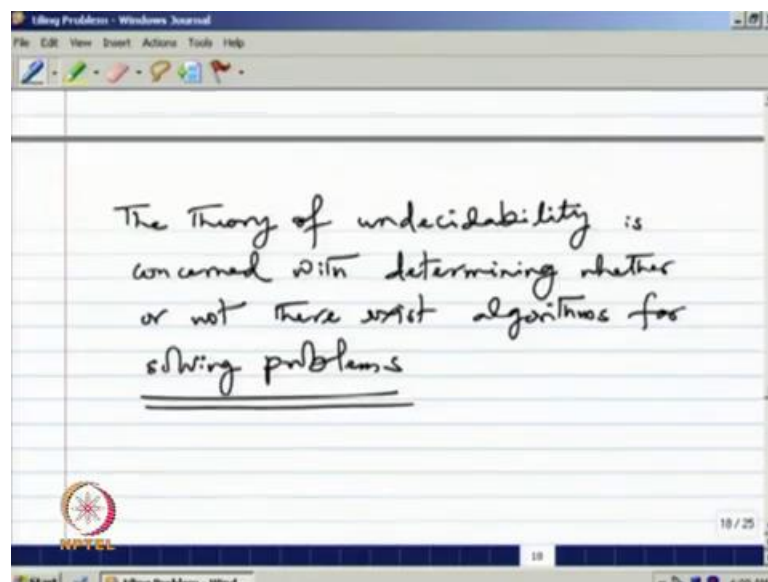 tiling Problem - Windows Journal
File Edit View Insert Actions Tools Help
The Theory of undecidability is
concerned with determining whether
or not there exist algorithms for
solving problems
NPTEL
18 / 25
18